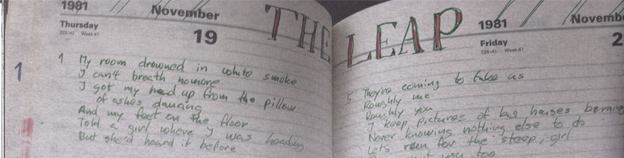 1981
November
Thursday
19
THE LEAP
1981
Friday
Novemb
2
1
1 My room drowned in white smoke
I can't breath nomore
I got my head up from the pillow
of ashes dancing
And my feet on the floor
Told a girl where I was heading
But she'd heard it before
5 They're coming to take us
Roughly me
Roughly you
I keep pictures of big houses burning
Never knowing nothing else to do
Let's run for the steep, girl
you too